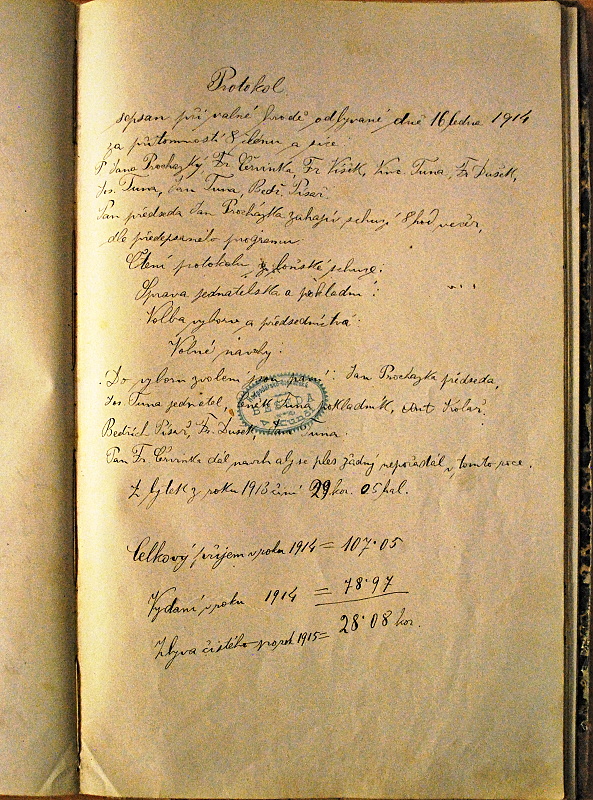 Protokol
sepsan při valné hromadě odbyvané dně 16 ledna 1914
za přitomnosti 8 členu a sice:
P. Jana Procházky, Fr. Červinka, Fr. Vísek, Vinc. Tuna, Fr. Dušek,
Jos. Tuna, Jan Tuna, Bedř. Písař.
Pan předseda Jan Procházka zahajis schuzi 8 hod večer,
dle předepsaného programu
Čtení protokolu z loňské schuze:
Sprava jednatelska a pokladni:
Volba vyboru a předsednitva:
Volné návrhy:
Do vyboru zvoleni jsou Jan Procházka předseda,
Jos. Tuna jednatel, Tuna pokladník, Ant. Kolář,
Bedřich Písař, Fr. Dušek, Tuna.
BESEDA
Pan Fr. Červinka dál navrh aby se ples žádný nepořádál v tomto roce.
Zbytek z roku 1913 činí 29 kor. 05 hal.
Celkový příjem v roku 1914 = 107·05
Vydaní v roku 1914 = 78·97
Zbyva čistého na rok 1915 = 28·08 kor.